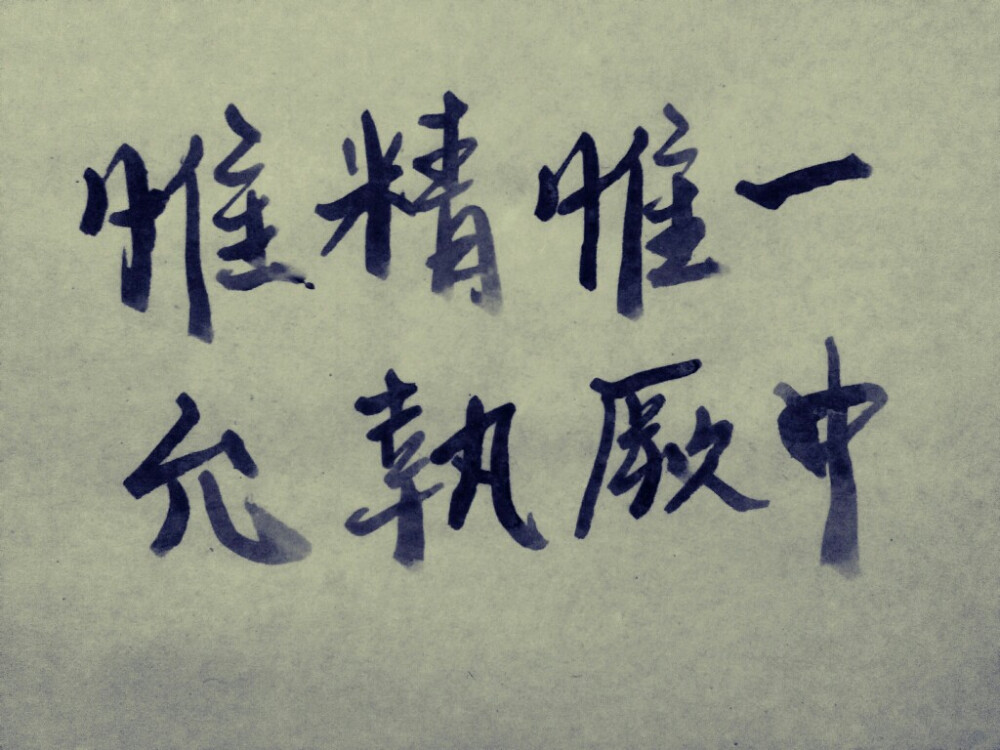 惟精惟一
允執厥中